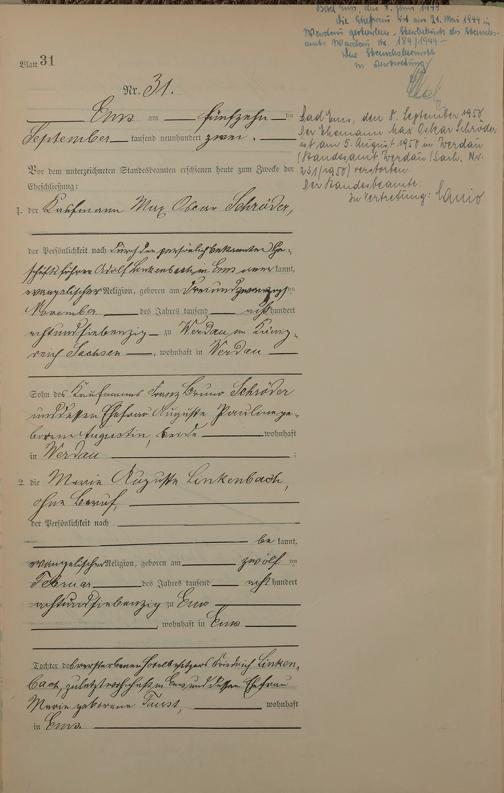 Blatt 31
Bad Ems, den 8. Juni 1944
Die Ehefrau ist am 21. Mai 1944 in
Werdau gestorben. Sterbebuch des Standes-
amts Werdau Nr. 189/1944.
Der Standesbeamte
in Vertretung
Nr. 31.
Ems am fünfzehnten
September tausend neunhundert zwei.
Bad Ems, den 8. September 1950
Der Ehemann Max Oskar Schröder
ist am 5. August 1950 in Werdau
(Standesamt Werdau/Sach. Nr.
231/1950) verstorben.
Der Standesbeamte
In Vertretung:
Vor dem unterzeichneten Standesbeamten erschienen heute zum Zwecke der
Eheschließung:
1. der Kaufmann Max Oscar Schröder,
der Persönlichkeit nach durch den persönlich bekannten Ge-
schäftsführer Adolf Linkenbach in Ems anerkannt,
evangelischer Religion, geboren am
November des Jahres tausend achthundert
achtundsiebenzig zu Werdau, im König-
reich Sachsen, wohnhaft in Werdau
Sohn des Kaufmannes Franz Bruno Schröder
und dessen Ehefrau Auguste Pauline ge-
borene Augustin, beide wohnhaft
in Werdau ;
2. die Marie Auguste Linkenbach,
ohne Beruf,
der Persönlichkeit nach
bekannt,
evangelischer Religion, geboren am zwölften
Februar des Jahres tausend achthundert
achtundsiebenzig zu Ems
, wohnhaft in Ems
Tochter des verstorbenen Hotelbesitzers Friedrich Linken-
bach, zuletzt wohnhaft in Ems, und dessen Ehefrau
Marie geborene Faust, wohnhaft
in Ems